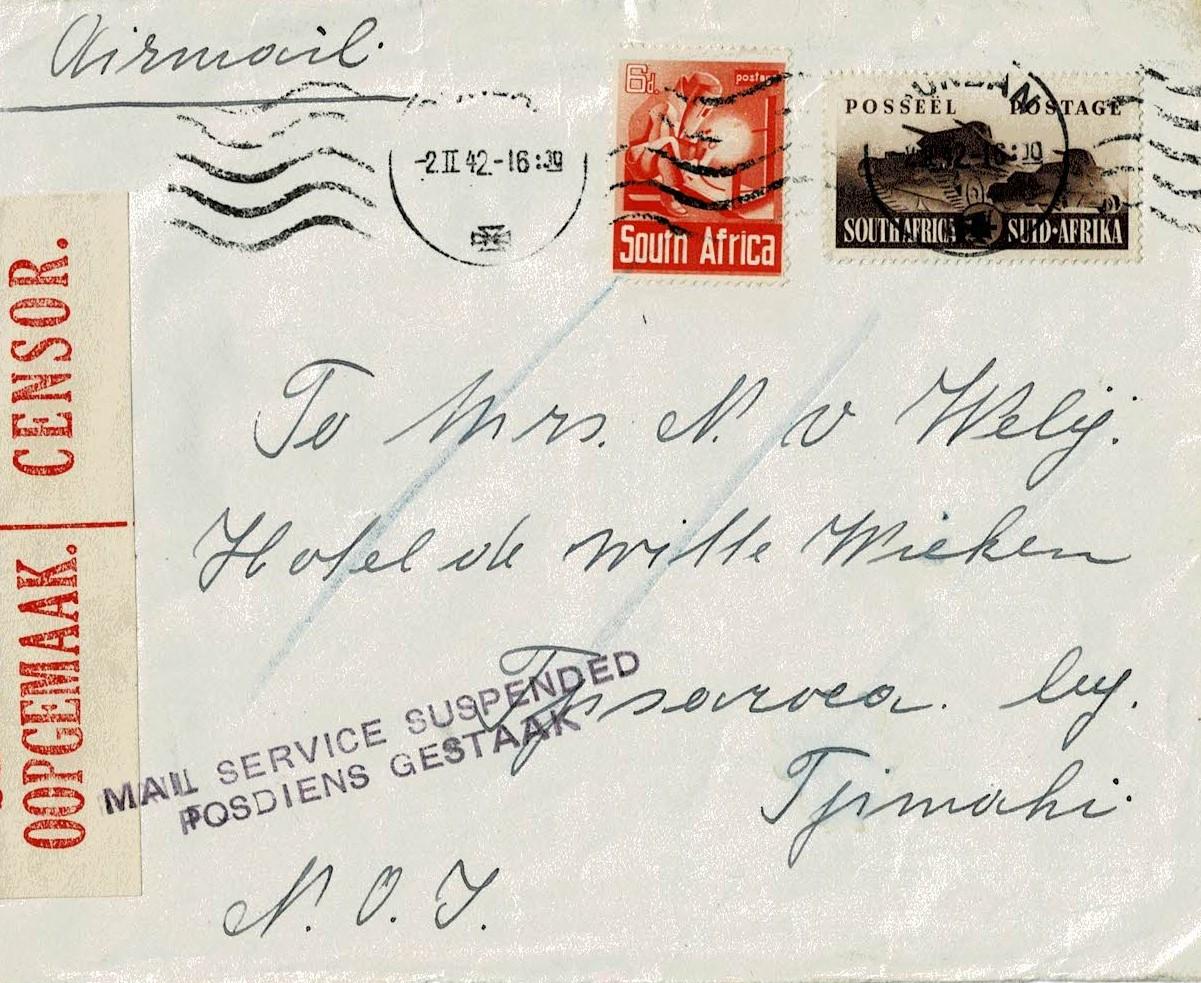 Airmail
6d. postage
POSSEËL POSTAGE
DURBAN
-2.II 42.-16:30
South Africa
SOUTH AFRICA SUID-AFRIKA
CENSOR.
OOPGEMAAK.
To Mrs. N. v Welij.
Hotel de witte Wieken
Tjisaroea. by.
Tjimahi.
MAIL SERVICE SUSPENDED
POSDIENS GESTAAK
N. O. I.